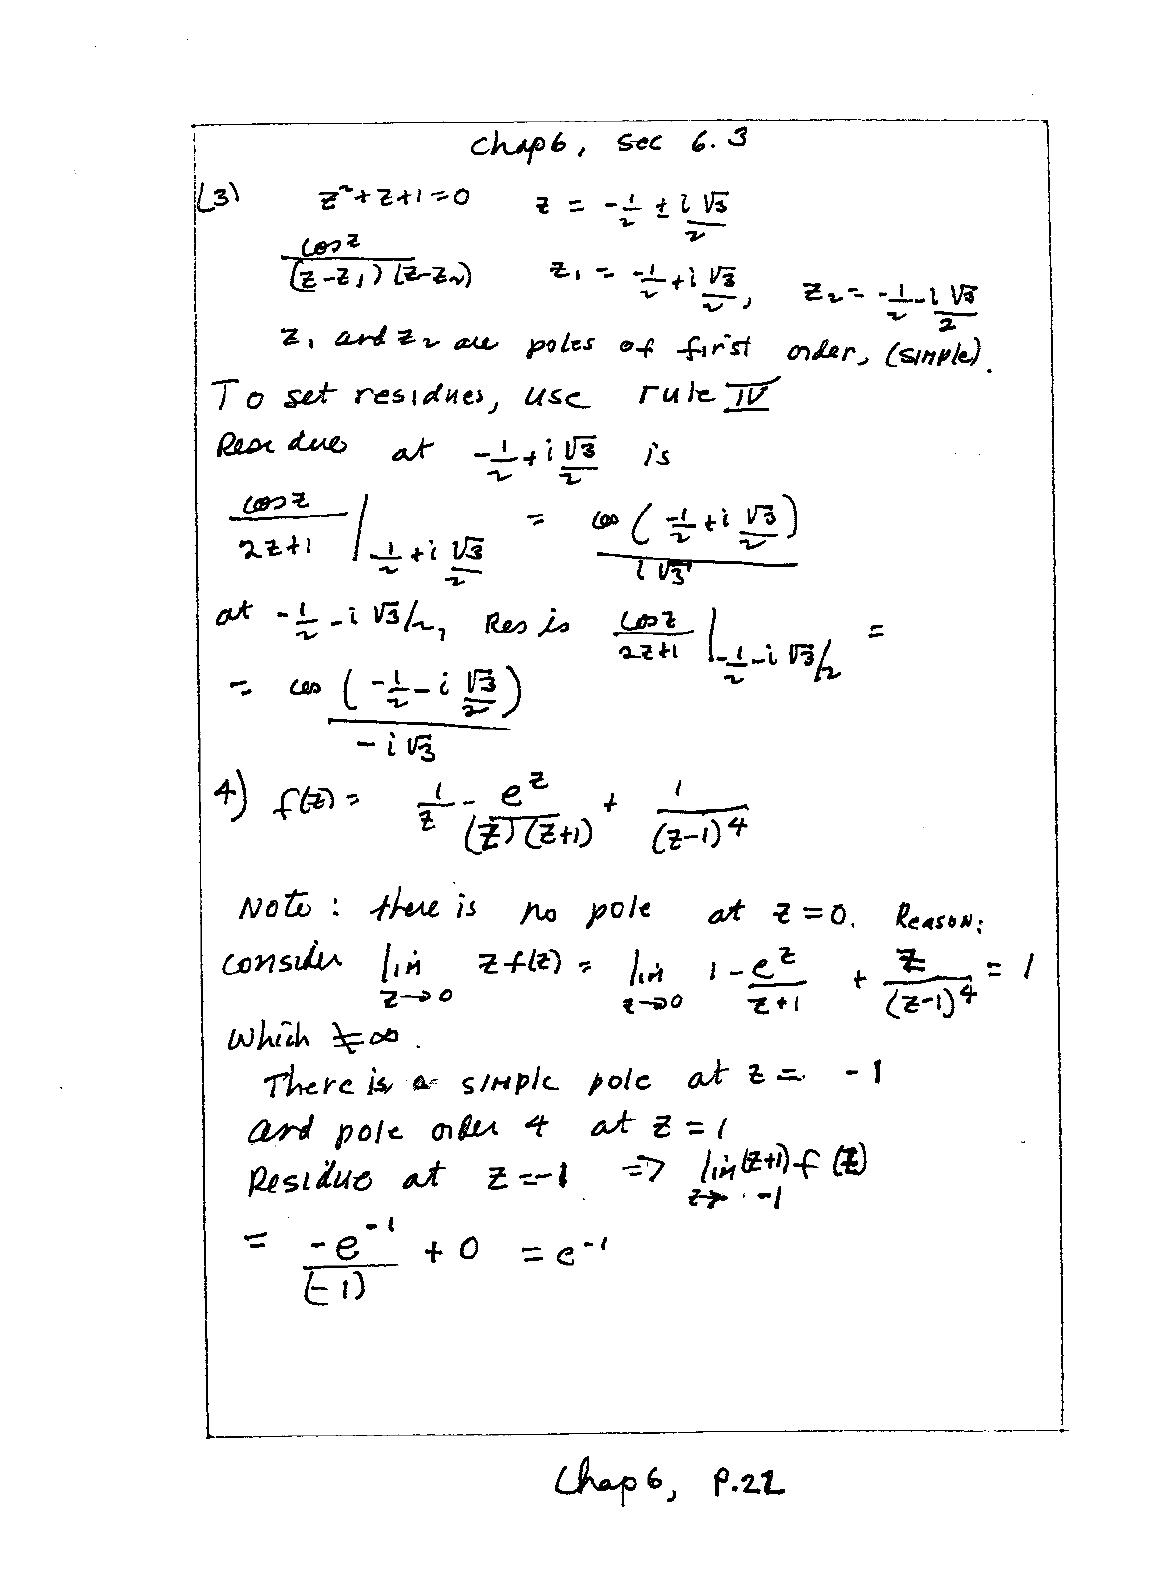 Chap 6, sec 6.3
(3) z²+z+1=0 z = -1/2 ± i √3/2
cos z/((z-z₁)(z-z₂)) z₁ = -1/2+i √3/2, z₂ = -1/2-i √3/2
z₁ and z₂ are poles of first order, (simple).
To get residues, use rule IV
Residue at -1/2+i √3/2 is
cos z/(2z+1) |_{-1/2+i √3/2} = cos(-1/2+i √3/2)/(i√3)
at -1/2-i √3/2, Res is cos z/(2z+1) |_{-1/2-i √3/2} =
= cos(-1/2-i √3/2)/(-i√3)
4) f(z) = 1/z - e^z/((z)(z+1)) + 1/(z-1)^4
Note: there is no pole at z=0. Reason:
consider lim_{z→0} z f(z) = lim_{z→0} 1 - e^z/(z+1) + z/(z-1)^4 = 1
which ≠ ∞.
There is a simple pole at z = -1
and pole order 4 at z = 1
Residue at z = -1 ⇒ lim_{z→ -1} (z+1) f(z)
= -e^{-1}/(-1) + 0 = e^{-1}
Chap 6, p.22